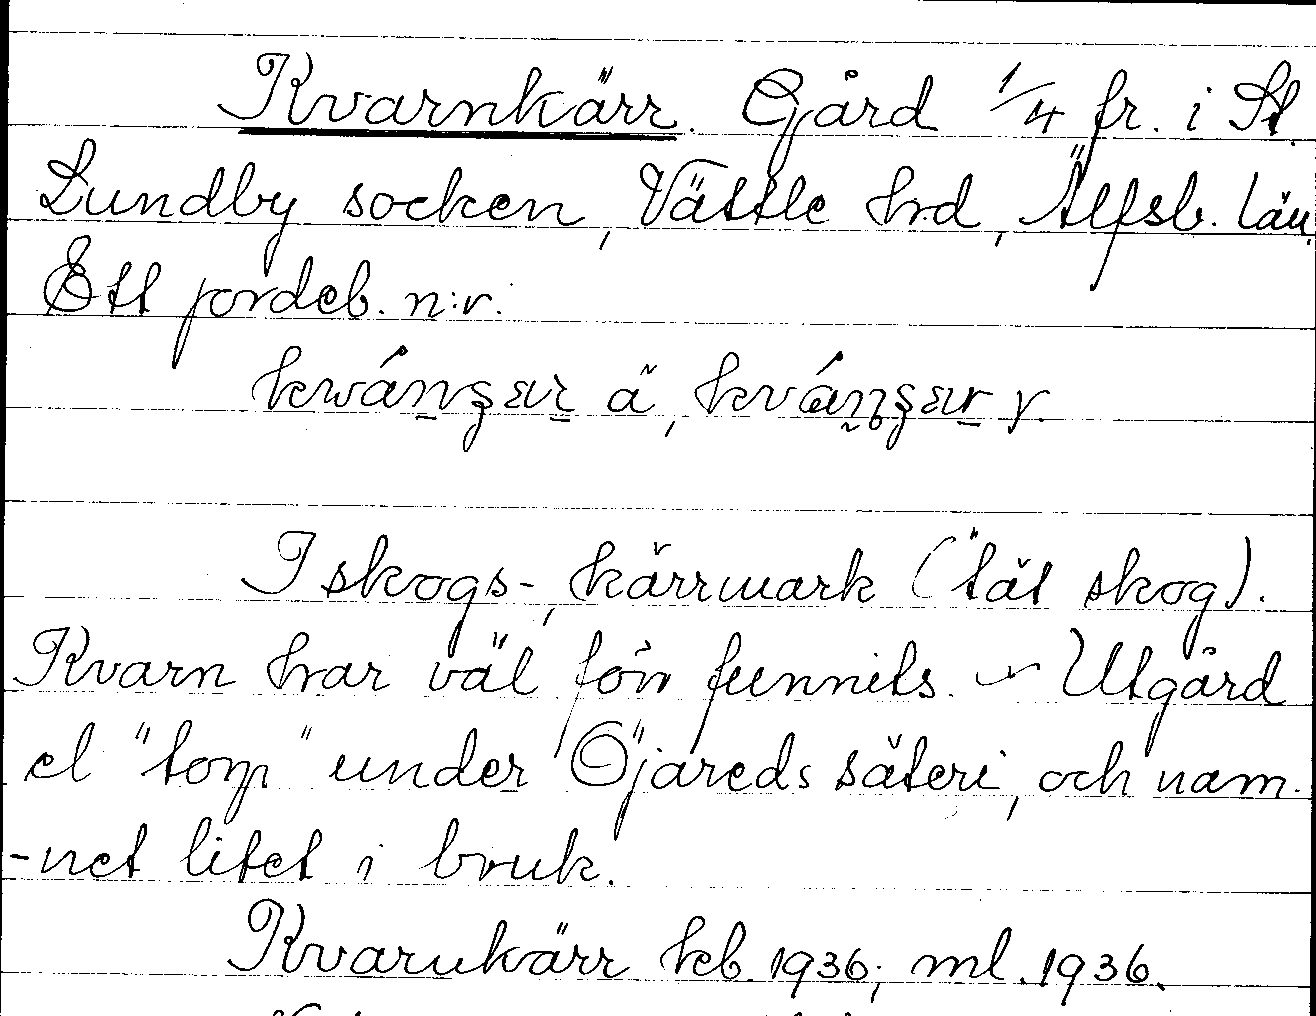 Kvarnkärr. Gård 1/4 fr. i St.
Lundby socken, Vättle hrd, Älfsb. län.
Ett jordeb. n:r.
I skogs-, kärrmark (tät skog).
Kvarn har väl förr funnits. - Utgård
el "torp" under Öjareds säteri, och nam-
-net litet i bruk.
Kvarnkärr kb. 1936; ml. 1936.